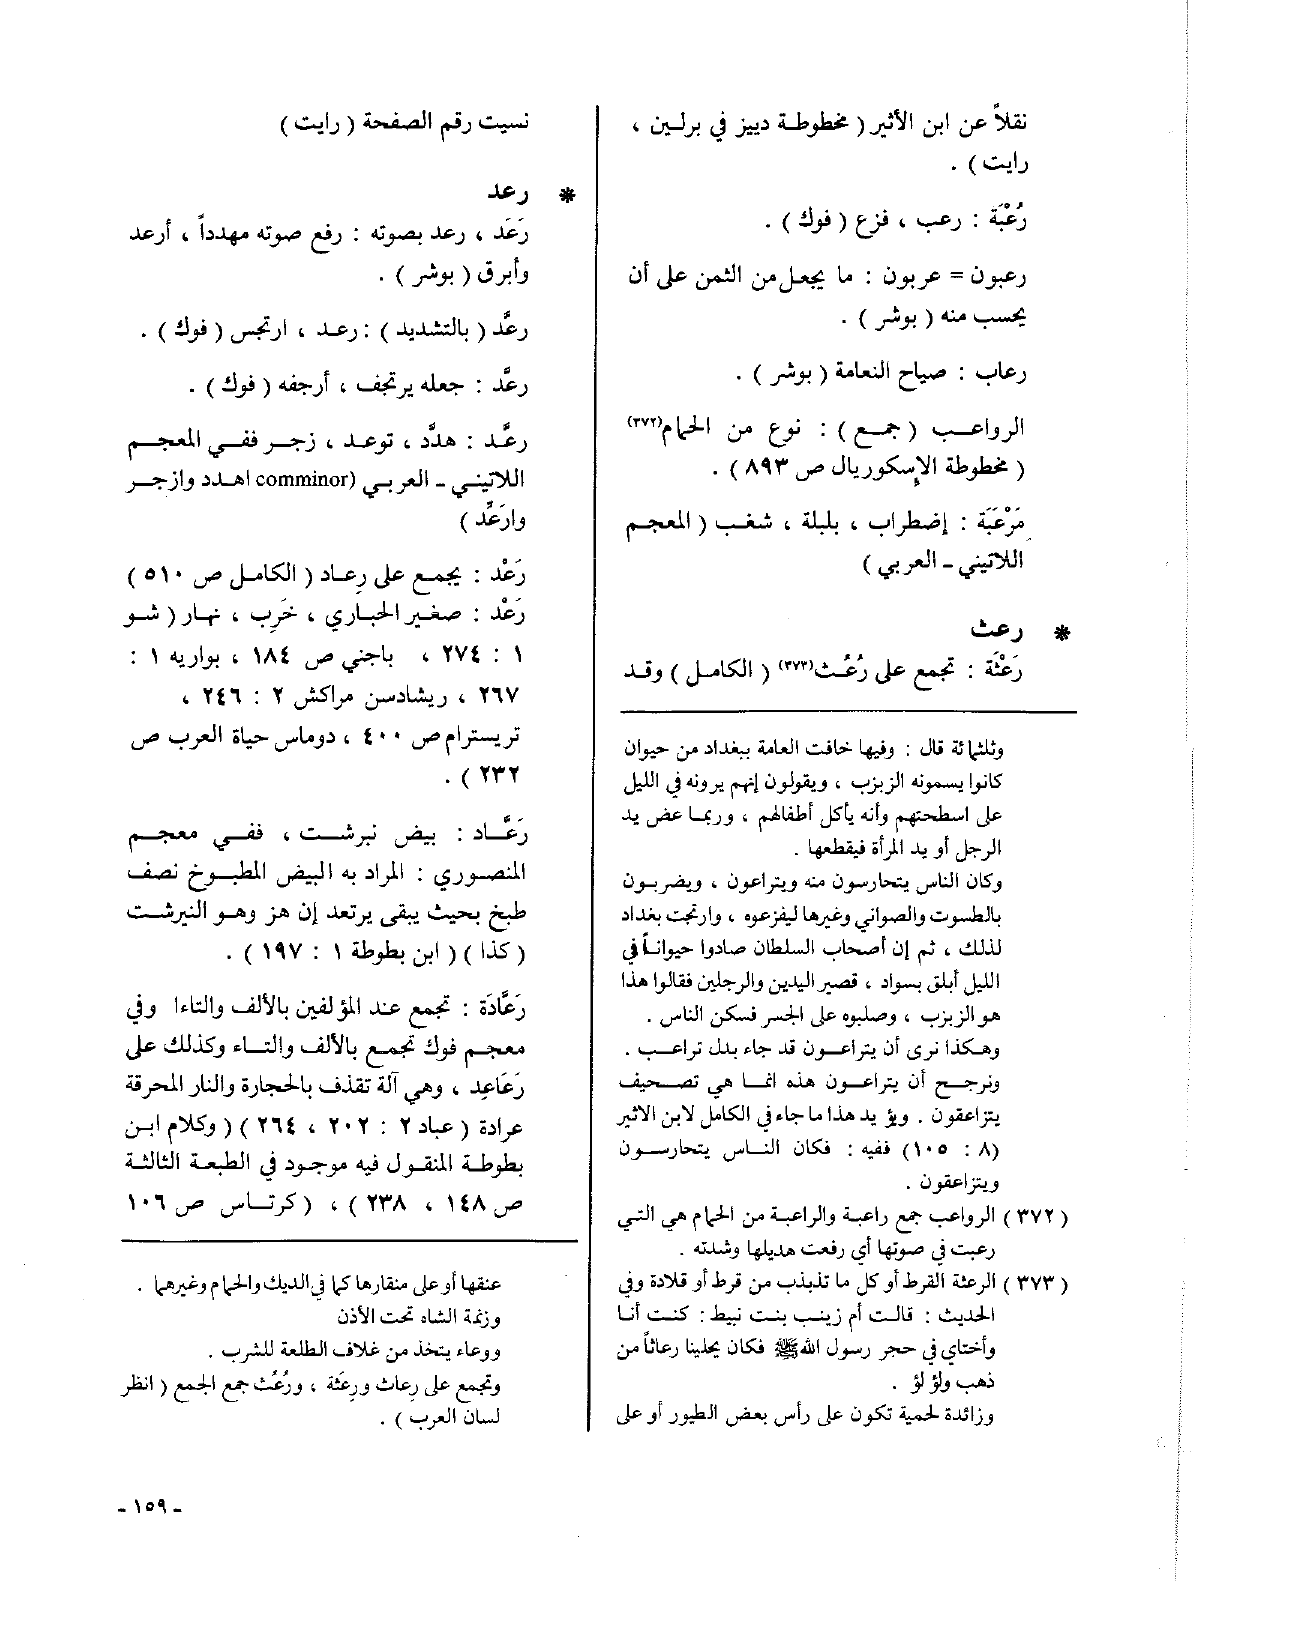 نقلاً عن ابن الأثير ( مخطوطة دييز في برلين ،
رايت ) .
رُعْبَة : رعب ، فزع ( فوك ) .
رعبون = عربون : ما يجعل من الثمن على أن
يحسب منه ( بوشر ) .
رعاب : صياح النعامة ( بوشر ) .
الرواعب ( جمع ) : نوع من الحمام(٣٧٢)
( مخطوطة الإسكوريال ص ٨٩٣ ) .
مَرْعَبَة : إضطراب ، بلبلة ، شغب ( المعجم
اللاتيني - العربي )
* رعث
رَعْثَة : تجمع على رُعُث(٣٧٣) ( الكامل ) وقد
وثلثمائة قال : وفيها خافت العامة ببغداد من حيوان
كانوا يسمونه الزبزب ، ويقولون إنهم يرونه في الليل
على اسطحتهم وأنه يأكل أطفالهم ، وربما عض يد
الرجل أو يد المرأة فيقطعها .
وكان الناس يتحارسون منه ويتراعون ، ويضربون
بالطسوت والصواني وغيرها ليفزعوه ، وارتجت بغداد
لذلك ، ثم إن أصحاب السلطان صادوا حيواناً في
الليل أبلق بسواد ، قصير اليدين والرجلين فقالوا هذا
هو الزبزب ، وصلبوه على الجسر فسكن الناس .
وهكذا نرى أن يتراعون قد جاء بدل تراعب .
ونرجح أن يتراعون هذه انما هي تصحيف
يتزاعقون . ويؤيد هذا ما جاء في الكامل لابن الاثير
(٨ : ١٠٥) ففيه : فكان الناس يتحارسون
ويتزاعقون .
(٣٧٢) الرواعب جمع راعبة والراعبة من الحمام هي التي
رعبت في صوتها أي رفعت هديلها وشدته .
(٣٧٣) الرعثة القرط أو كل ما تذبذب من قرط أو قلادة وفي
الحديث : قالت أم زينب بنت نبيط : كنت أنا
وأختاي في حجر رسول الله ﷺ فكان يحلينا رعاثاً من
ذهب ولؤلؤ .
وزائدة لحمية تكون على رأس بعض الطيور أو على
نسيت رقم الصفحة ( رايت )
* رعد
رَعَد ، رعد بصوته : رفع صوته مهدداً ، أرعد
وأبرق ( بوشر ) .
رعَّد ( بالتشديد ) : رعد ، ارتجس ( فوك ) .
رعَّد : جعله يرتجف ، أرجفه ( فوك ) .
رعَّد : هدَّد ، توعد ، زجر ففي المعجم
اللاتيني - العربي (comminor اهدد وازجر
وارَعِّد )
رَعْد : يجمع على رِعاد ( الكامل ص ٥١٠ )
رَعْد : صغير الحبارى ، خَرِب ، نهار ( شو
١ : ٢٧٤ ، باجني ص ١٨٤ ، بواريه ١ :
٢٦٧ ، ريشادسن مراكش ٢ : ٢٤٦ ،
تريسترام ص ٤٠٠ ، دوماس حياة العرب ص
٢٣٢ ) .
رَعَّاد : بيض نبرشت ، ففي معجم
المنصوري : المراد به البيض المطبوخ نصف
طبخ بحيث يبقى يرتعد إن هز وهو النيرشت
( كذا ) ( ابن بطوطة ١ : ١٩٧ ) .
رَعَّادَة : تجمع عند المؤلفين بالألف والتاءا وفي
معجم فوك تجمع بالألف والتاء وكذلك على
رَعَاعِد ، وهي آلة تقذف بالحجارة والنار المحرقة
عرادة ( عباد ٢ : ٢٠٢ ، ٢٦٤ ) ( وكلام ابن
بطوطة المنقول فيه موجود في الطبعة الثالثة
ص ١٤٨ ، ٢٣٨ ) ، ( كرتاس ص ١٠٦
عنقها أو على منقارها كما في الديك والحمام وغيرهما .
وزنمة الشاه تحت الأذن
ووعاء يتخذ من غلاف الطلعة للشرب .
وتجمع على رعاث ورِعَثة ، ورُعُث جمع الجمع ( انظر
لسان العرب ) .
- ١٥٩ -